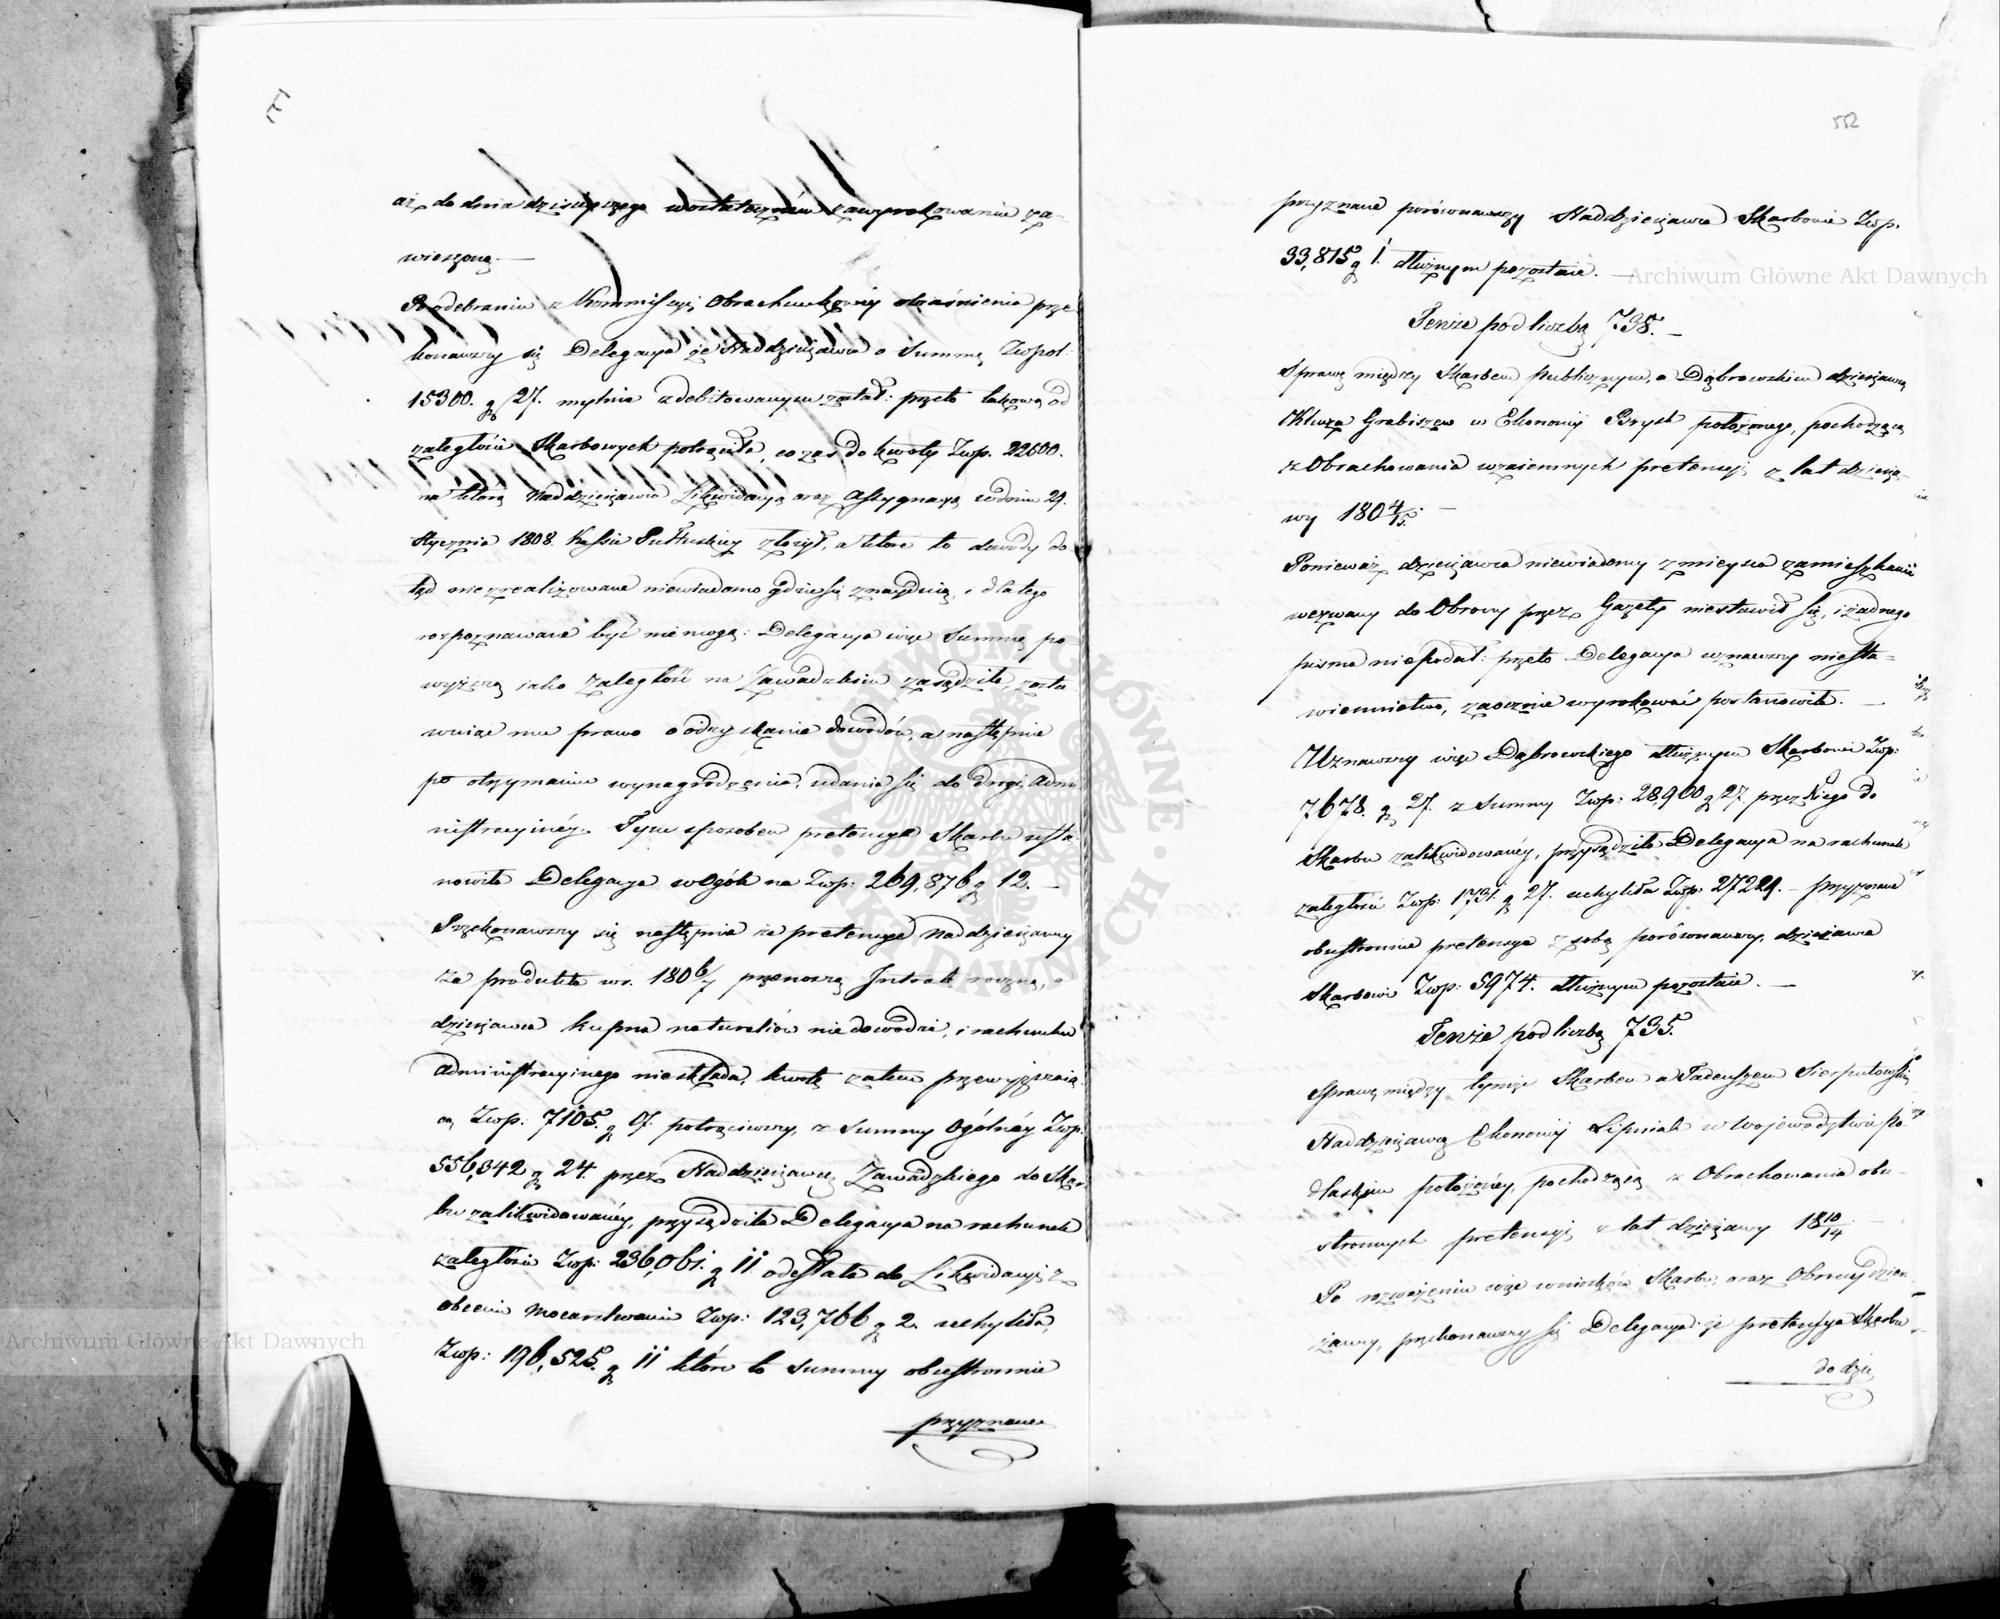 552
aż do dnia dzisieyszego wostateczném zawyrokowaniu za-
wieszoną.—
Po odebraniu z Kommissyi Obrachunkowéy obiaśnienia prze
konawszy się Delegacya że Naddzierżawca o Summę Zwpol:
15300. g 27. mylnie zdebitowanym został: przeto takową od
zaległości Skarbowych potrąciła, co zaś do kwoty Zwp. 22600.
na którą Naddzierżawca Likwidacyą oraz Assygnacyą w dniu 29.
Stycznia 1808. Kassie Pułtuskiey złożył, a które to dowody do
tąd niezrealizowane niewiadomo gdzie się znayduią, i dlatego
rozpoznawane być niemogą: Delegacya więc Summę po
wyższą iako zaległość na Zawadzkim zasądziła, zosta
wuiąc mu prawo o odzyskanie dowodów, a następnie
po otrzymaniu wynagrodzenia, udania się do drogi Admi
nistracyinéy. Tym sposobem pretensye Skarbu usta-
nowiła Delegacya wogóle na Zwp: 269,876 g 12.—
Przekonawszy się następnie że pretensye Naddzierżawcy
za produkta w r. 180 6/7 przenoszą Intratę roczną, a
dzierżawca kupna naturaliów niedowodzi, i rachunku
Administracyinego nieskłada, kwotę zatem przewyższaią
cą Zwp: 7105. g 07. potrąciwszy, z Summy Ogólnéy Zwp:
556,342 g 24. przez Naddzierżawcę Zawadzkiego do Skar
bu zalikwidowanéy, przysądziła Delegacya na rachunek
zaległości Zwp: 236,061. g 11 odesłała do Likwidacyi z
obcemi Mocarstwami Zwp: 123,766 g 2. uchyliła,
Zwp: 196,525. g 11 które to Summy obustronnie
przyznane
przyznane porównawszy Naddzierżawca Skarbowi Zwp.
33,815 g 1. dłużnym pozostaie.—
Tenże pod liczbą 738.—
Sprawę między Skarbem publicznym, a Dąbrowskim dzierżawcą
Klucza Grabiszew w Ekonomij Brzysk położonego, pochodzącą
z Obrachowania wzaiemnych pretensyi z lat dzierża-
wy 180 4/15.—
Ponieważ dzierżawca niewiadomy z mieysca zamieszkania
wezwany do Obrony przez Gazety niestawił się, i żadnego
pisma niepodał: przeto Delegacya uznawszy niesta=
wiennictwo, zaocznie wyrokować postanowiła.—
Uznawszy więc Dąbrowskiego dłużnym Skarbowi Zwp:
7678. g 27. z Summy Zwp: 28,960 g 27. przez Niego do
Skarbu zalikwidowanéy, przysądziła Delegacya na rachunek
zaległości Zwp: 1731. g 27. uchyliła Zwp: 27229.— przyznane
obustronnie pretensye z sobą porównawszy, dzierżawca
Skarbowi Zwp: 5974. dłużnym pozostaie.—
Tenże pod liczbą 735.
Sprawę między tymże Skarbem a Tadeuszem Sierputowskim
Naddzierżawcą Ekonomij Lipniak w Woiewodztwie Po
dlaskim położonéy, pochodzącą z Obrachowania obu-
stronnych pretensyi z lat dzierżawy 18 10/14.—
Po rozważeniu więc wniosków Skarbu, oraz Obrony dzier
żawcy, przekonawszy się Delegacya: że pretensya Skarbu
do dzie
Archiwum Główne Akt Dawnych
Archiwum Główne Akt Dawnych
ARCHIWUM GŁÓWNE AKT DAWNYCH